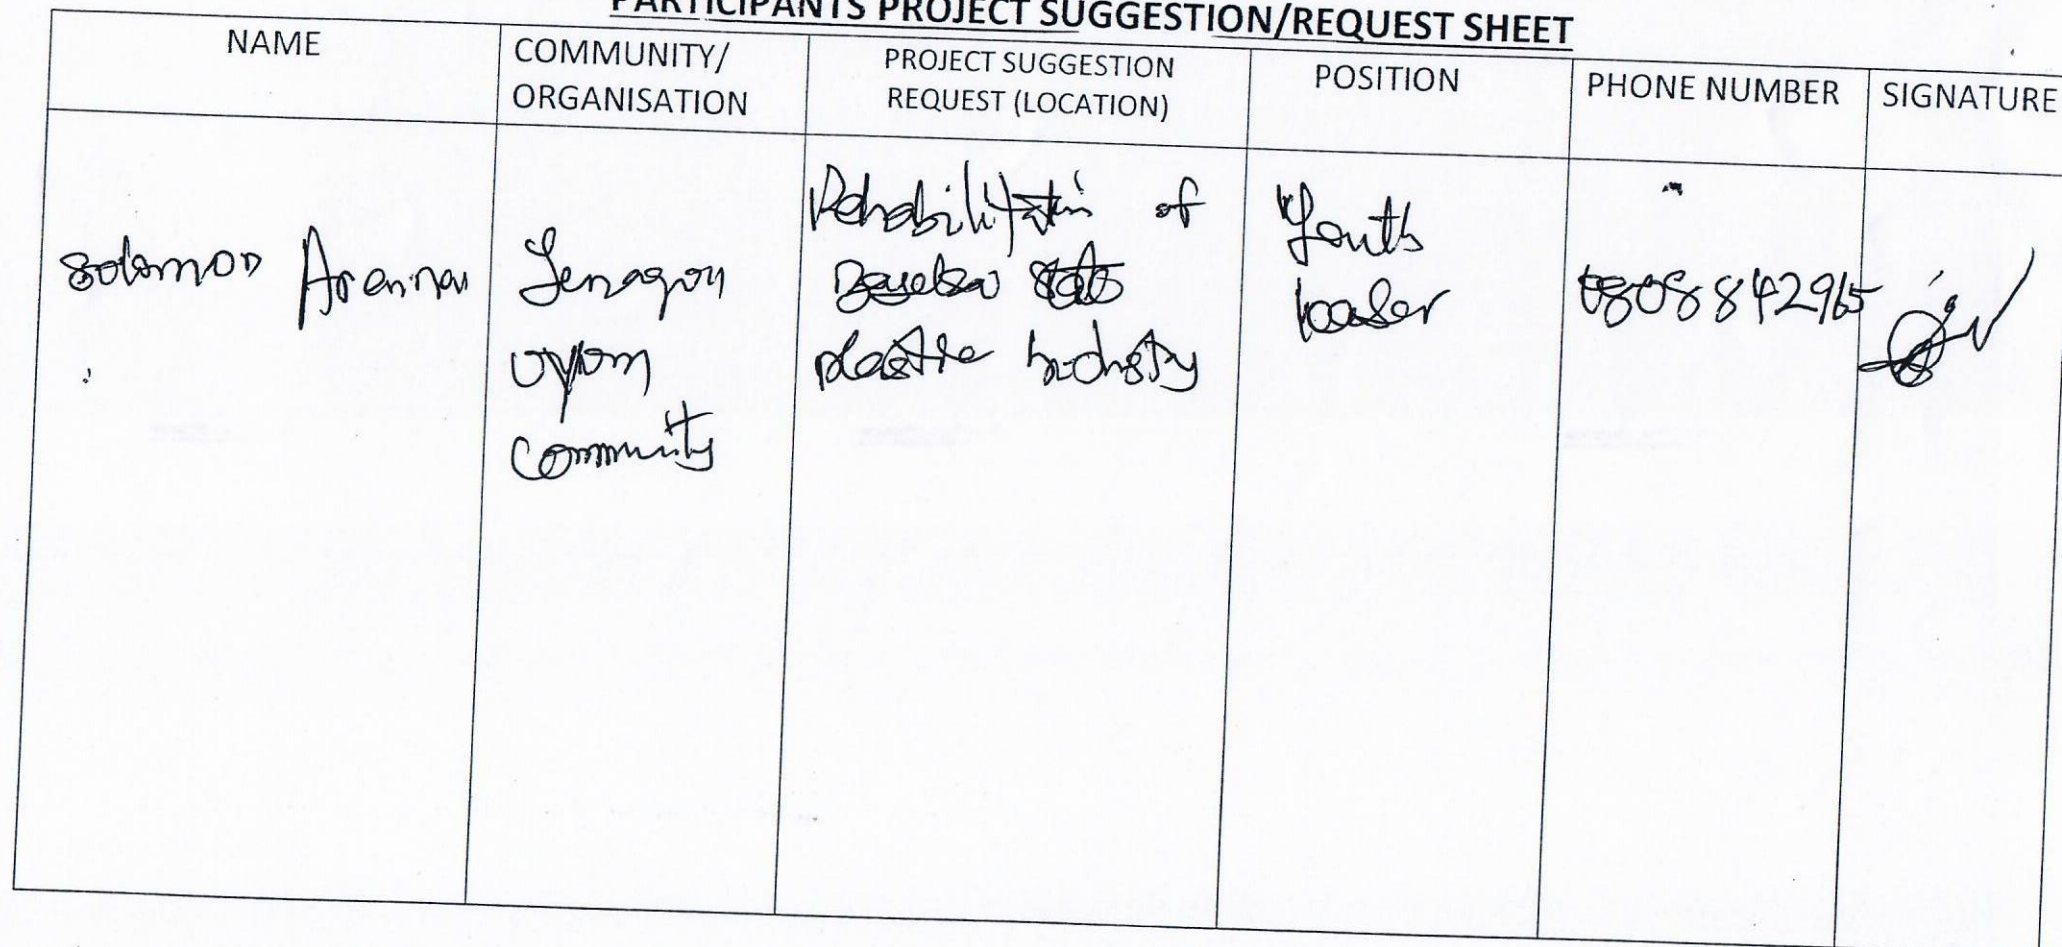 PARTICIPANTS PROJECT SUGGESTION/REQUEST SHEET
NAME
COMMUNITY/
ORGANISATION
PROJECT SUGGESTION
REQUEST (LOCATION)
POSITION
PHONE NUMBER
SIGNATURE
Solomon
community
Rehabilitation of
Bayelsa State
plastic Industry
Youth
leader